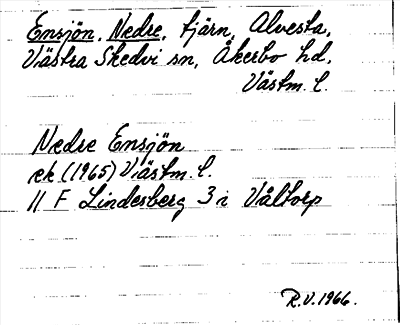 Ensjön, Nedre, tjärn, Alvesta,
Västra Skedvi sn, Åkerbo hd,
Västm. l.
Nedre Ensjön
ek (1965) Västm. l.
11 F Lindesberg 3 i Våltorp
R.V. 1966.